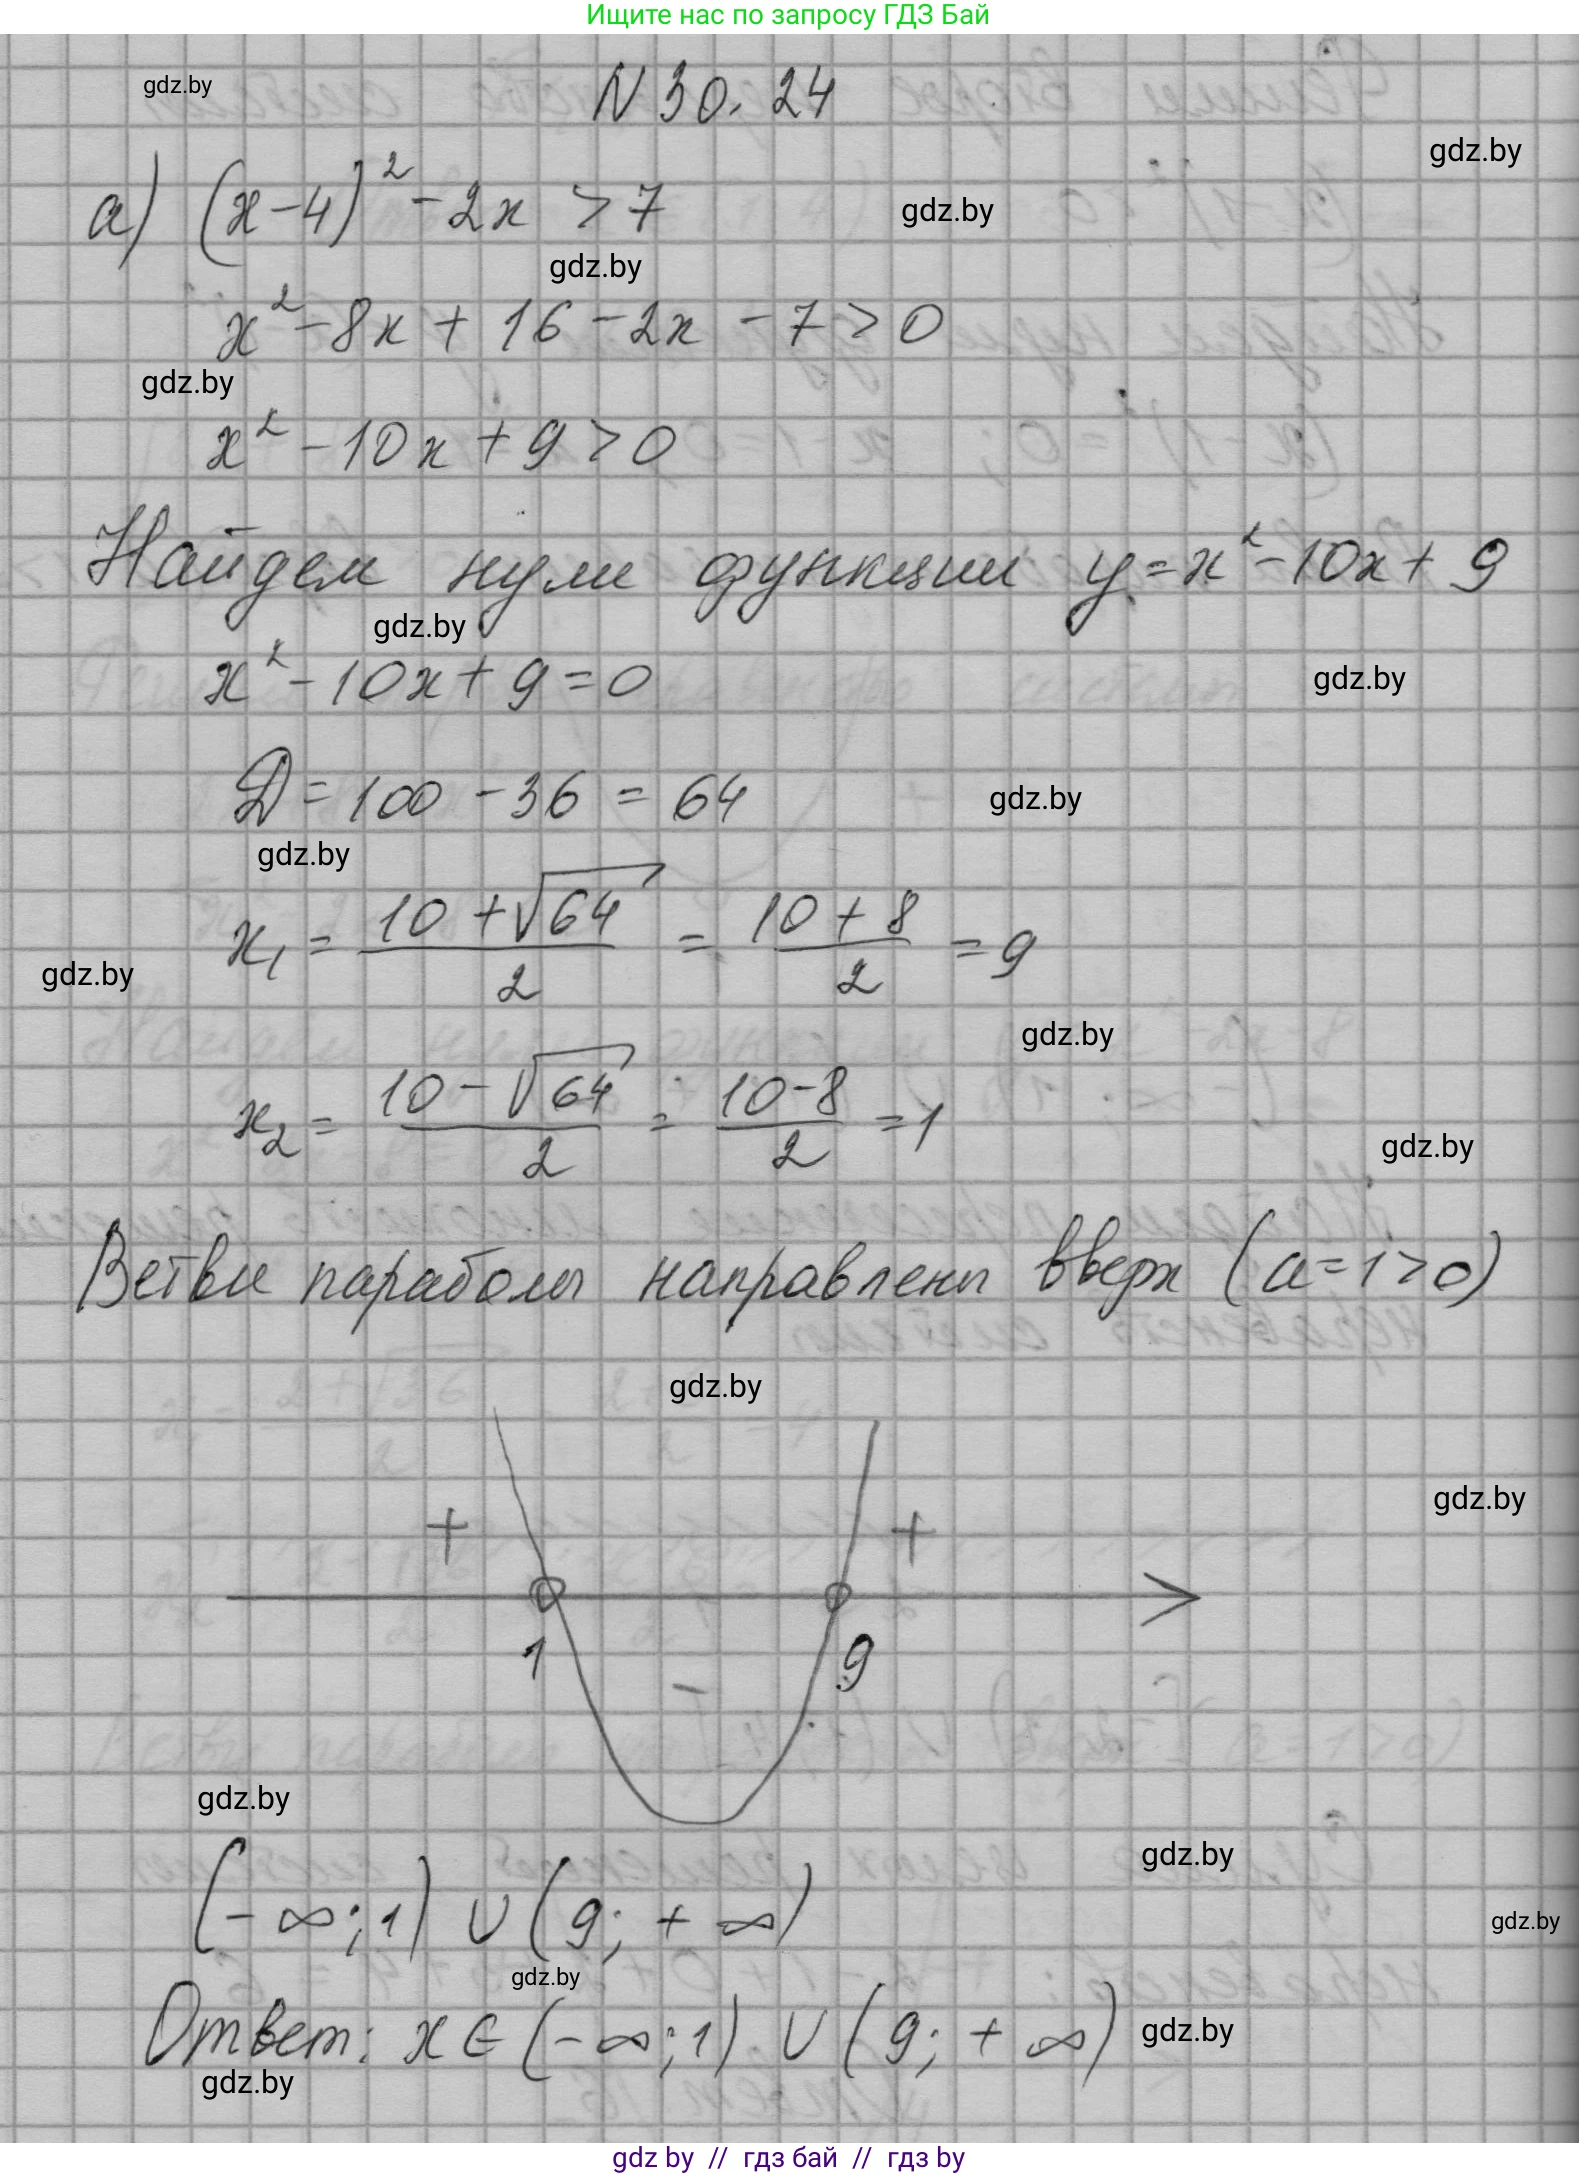 Ищите нас по запросу ГДЗ Бай
gdz.by
N 30. 24
gdz.by
а) (x-4)² - 2x > 7
gdz.by
gdz.by
x² - 8x + 16 - 2x - 7 > 0
gdz.by
x² - 10x + 9 > 0
Найдем нули функции y = x² - 10x + 9
gdz.by
x² - 10x + 9 = 0
gdz.by
D = 100 - 36 = 64
gdz.by
gdz.by
x₁ = (10 + √64)/2 = (10 + 8)/2 = 9
gdz.by
gdz.by
x₂ = (10 - √64)/2 = (10 - 8)/2 = 1
gdz.by
Ветви параболы направлены вверх (a = 1 > 0)
gdz.by
gdz.by
+ +
1 9
-
gdz.by
gdz.by
(-∞; 1) ∪ (9; +∞)
gdz.by
gdz.by
Ответ: x ∈ (-∞; 1) ∪ (9; +∞)
gdz.by
gdz.by
gdz by // гдз бай // гдз by